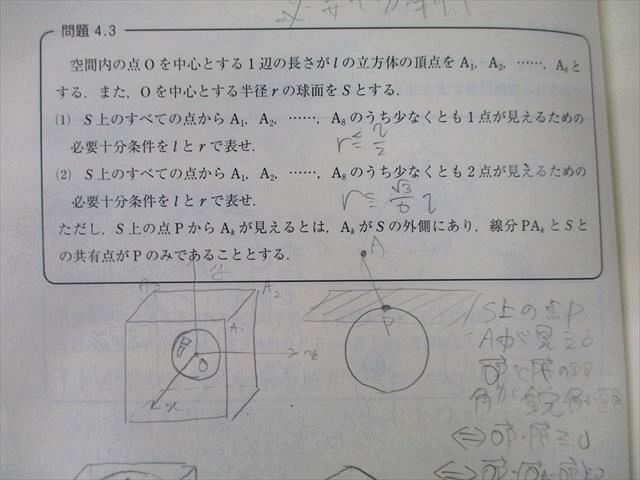 問題 4.3
空間内の点Oを中心とする1辺の長さがlの立方体の頂点をA₁, A₂, ……, A₈と
する. また, Oを中心とする半径rの球面をSとする.
(1) S上のすべての点からA₁, A₂, ……, A₈のうち少なくとも1点が見えるための
必要十分条件をlとrで表せ.
r≦l/2
(2) S上のすべての点からA₁, A₂, ……, A₈のうち少なくとも2点が見えるための
必要十分条件をlとrで表せ.
r≦√3/6 l
ただし, S上の点PからAₖが見えるとは, AₖがSの外側にあり, 線分PAₖとSと
の共有点がPのみであることとする.
A₂
A₁
O
x
A
P
S上の点P
Aが見える
OP と PA の
角が鋭角
⇔ OP・PA ≧ 0